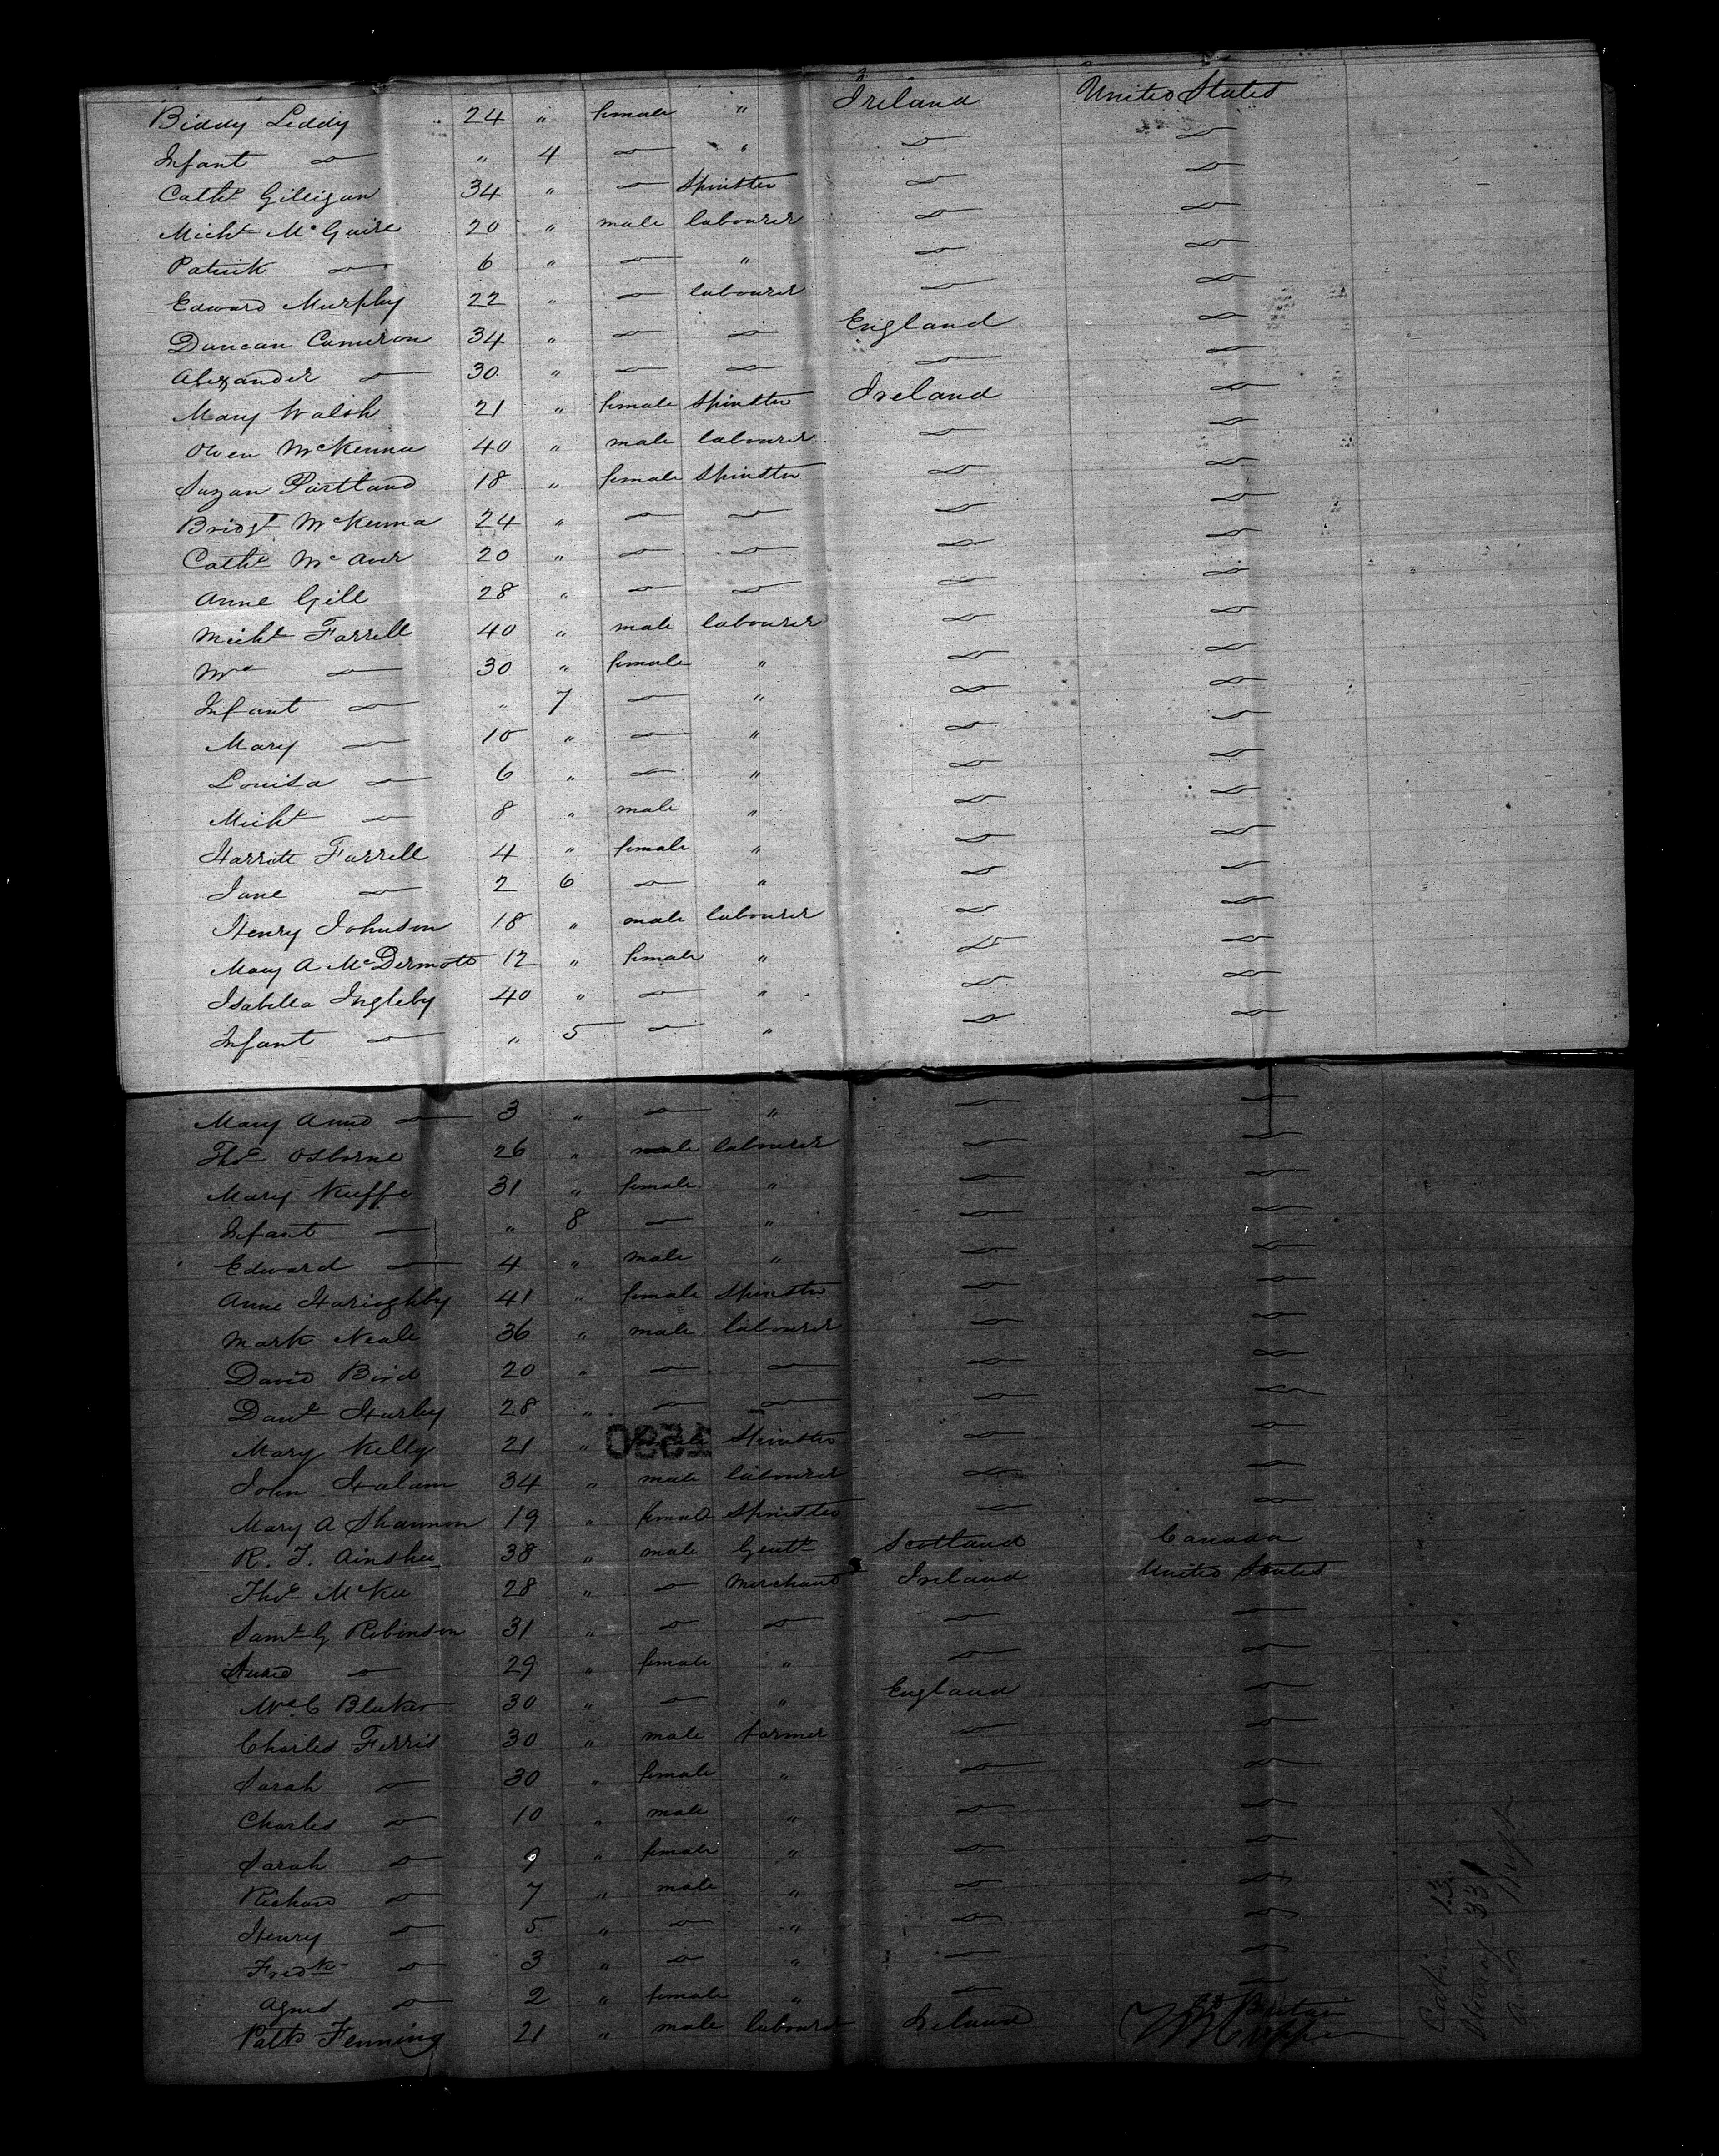 Biddy Leddy 24 " female " Ireland United States
Infant do " 4 do " do do
Cathe Gilligan 34 " do Spinster do do
Michl McGuire 20 " male labourer do do
Patrick do 6 " do " do do
Edward Murphy 22 " do labourer do do
Duncan Cameron 34 " do do England do
Alexander do 30 " do do do do
Mary Walsh 21 " female Spinster Ireland do
Owen McKenna 40 " male labourer do do
Suzan Partland 18 " female Spinster do do
Bridgt McKenna 24 " do do do do
Cathe McAver 20 " do do do do
Anne Gill 28 " do do do do
Michl Farrell 40 " male labourer do do
Mrs do 30 " female " do do
Infant do " 7 do " do do
Mary do 10 " do " do do
Louisa do 6 " do " do do
Michl do 8 " male " do do
Harriott Farrell 4 " female " do do
Jane do 2 6 do " do do
Henry Johnson 18 " male labourer do do
Mary A McDermott 12 " female " do do
Isabella Ingleby 40 " do " do do
Infant do " 5 do " do do
Mary Anne do 3 " do " do do
Thos Osborne 26 " male labourer do do
Mary Kuffe 31 " female " do do
Infant do " 8 do " do do
Edward do 4 " male " do do
Anne 41 " female Spinster do do
Mark Neale 36 " male labourer do do
David Bird 20 " do do do do
Danl Hurley 28 " do do do do
Mary Kelly 21 " Spinster do do
John Halam 34 " male labourer do do
Mary A Shannon 19 " female Spinster do do
R. T. Ainslie 38 " male Gentn Scotland Canada
Thos McKee 28 " do Merchant Ireland United States
Saml G Robinson 31 " do do do do
29 " female " do do
Mrs C Blaker 30 " do " England do
Charles Ferris 30 " male farmer do do
Sarah do 30 " female " do do
Charles do 10 " male " do do
Sarah do 9 " female " do do
Richard do 7 " male " do do
Henry do 5 " do " do do
Fredk do 3 " do " do do
Agnes do 2 " female " do do
Patk Fenning 21 " male labourer Ireland
Cabin 13